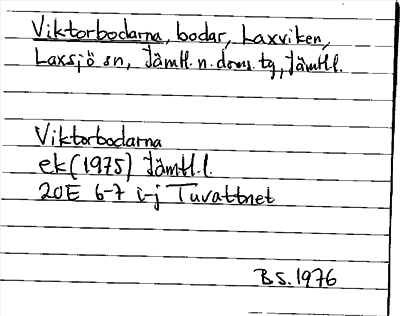 Viktorbodarna, bodar, Laxviken,
Laxsjö sn, Jämtl.n.doms.tg, Jämtl.l.
Viktorbodarna
ek (1975) Jämtl.l.
20E 6-7 i-j Tuvattnet
BS. 1976